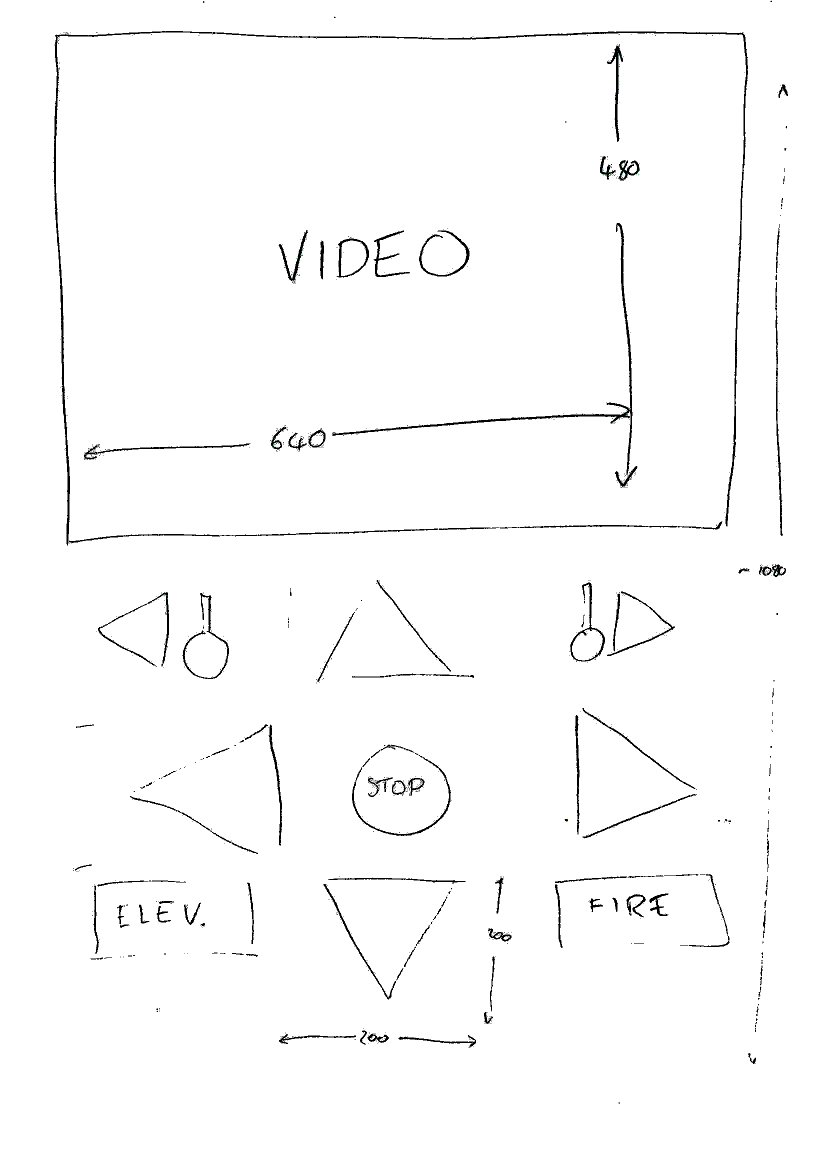 480
VIDEO
640
~ 1080
STOP
ELEV.
FIRE
200
200